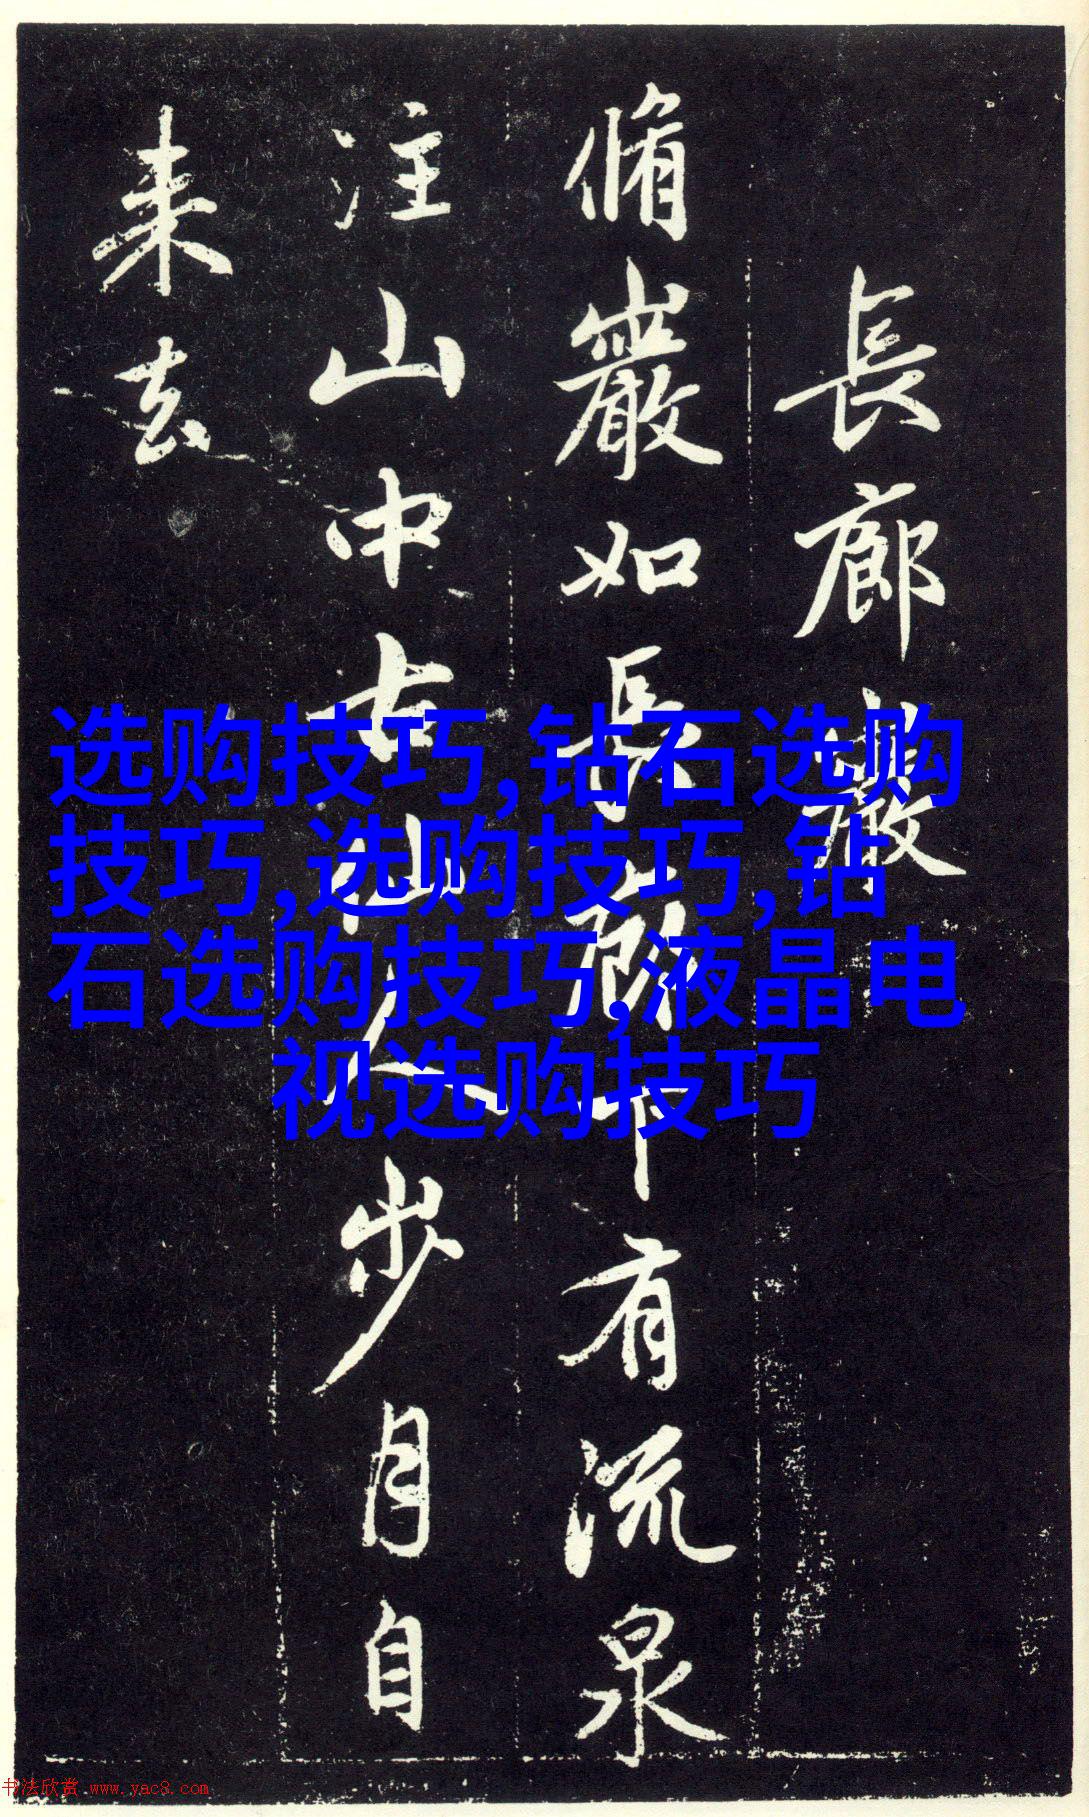 長廊巖
脩巖如長廊下有流泉
注山中古仙人步月自
来去
选购技巧,钻石选购
技巧,选购技巧,钻
石选购技巧,液晶电
视选购技巧
书法欣赏 www.yac8.com